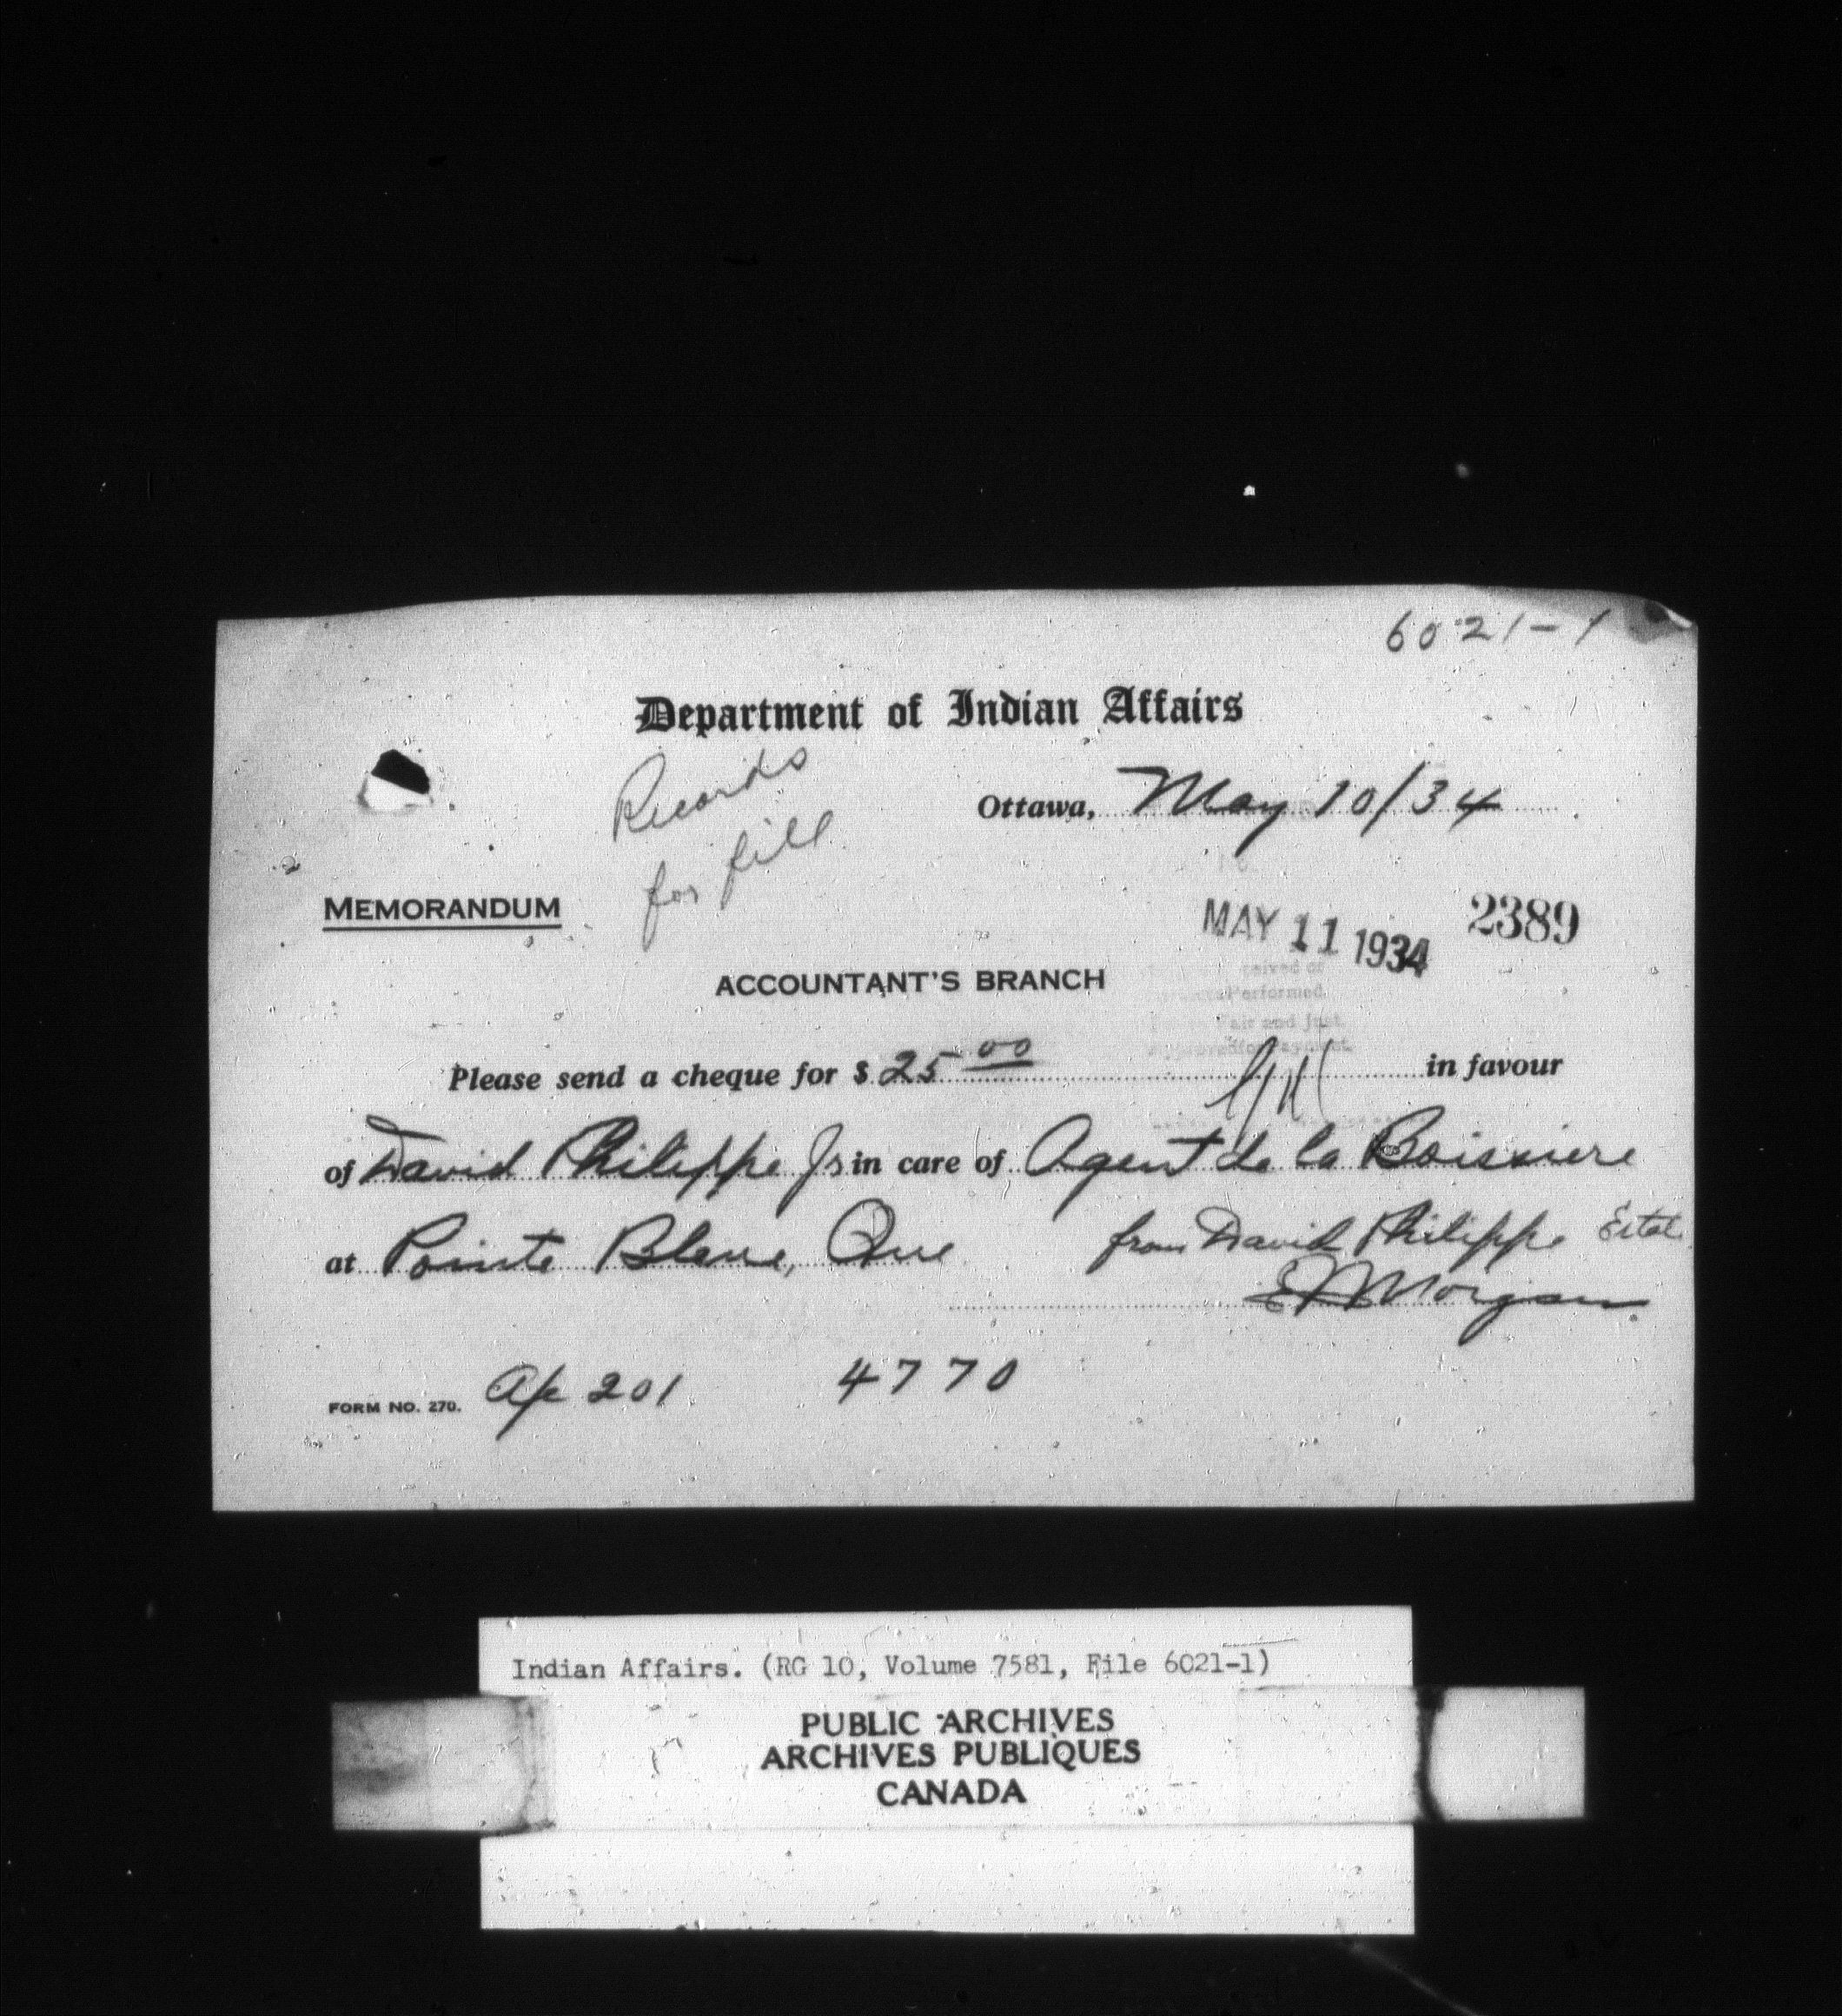 6021-1
Department of Indian Affairs
Records
for file
Ottawa, May 10/34
MEMORANDUM
MAY 11 1934 2389
ACCOUNTANT'S BRANCH
Performed.
Fair and just.
Please send a cheque for $ 25 00 in favour
of David Philippe Jr in care of Agent de la Boissiere
at Pointe Bleue, Que from David Philippe Estate
Morgan
FORM NO. 270. 201 4770
Indian Affairs. (RG 10, Volume 7581, File 6021-1)
PUBLIC ARCHIVES
ARCHIVES PUBLIQUES
CANADA